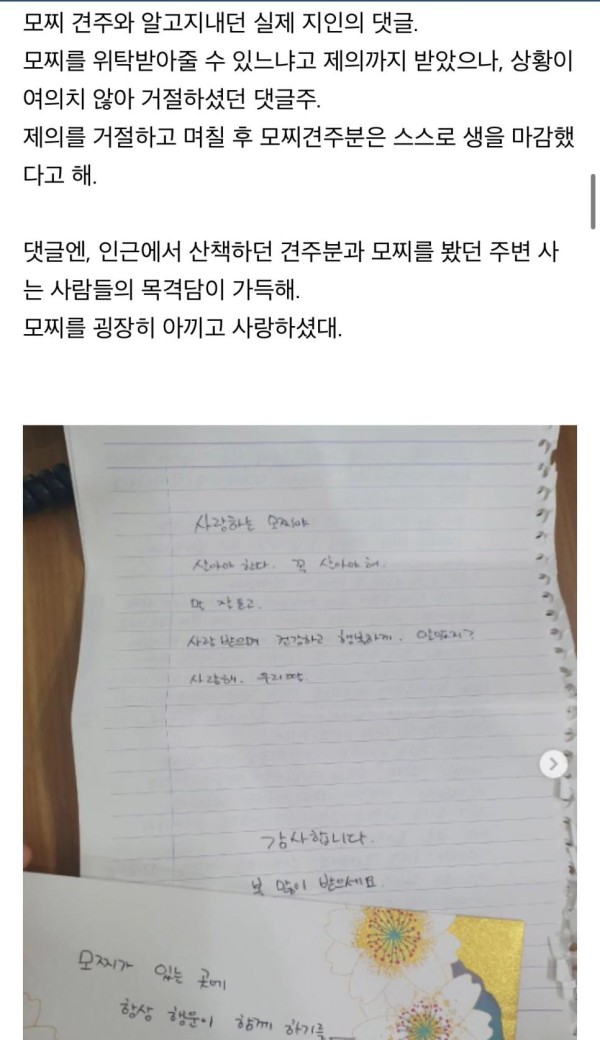 모찌 견주와 알고지내던 실제 지인의 댓글.
모찌를 위탁받아줄 수 있느냐고 제의까지 받았으나, 상황이
여의치 않아 거절하셨던 댓글주.
제의를 거절하고 며칠 후 모찌견주분은 스스로 생을 마감했
다고 해.
댓글엔, 인근에서 산책하던 견주분과 모찌를 봤던 주변 사
는 사람들의 목격담이 가득해.
모찌를 굉장히 아끼고 사랑하셨대.
사랑하는 모찌야
살아야 한다. 꼭 살아야 해.
약 잘 먹고.
사랑 받으며 건강하고 행복하게. 알았지?
사랑해. 우리 딸
감사합니다.
복 많이 받으세요.
모찌가 있는 곳에
항상 행운이 함께 하기를